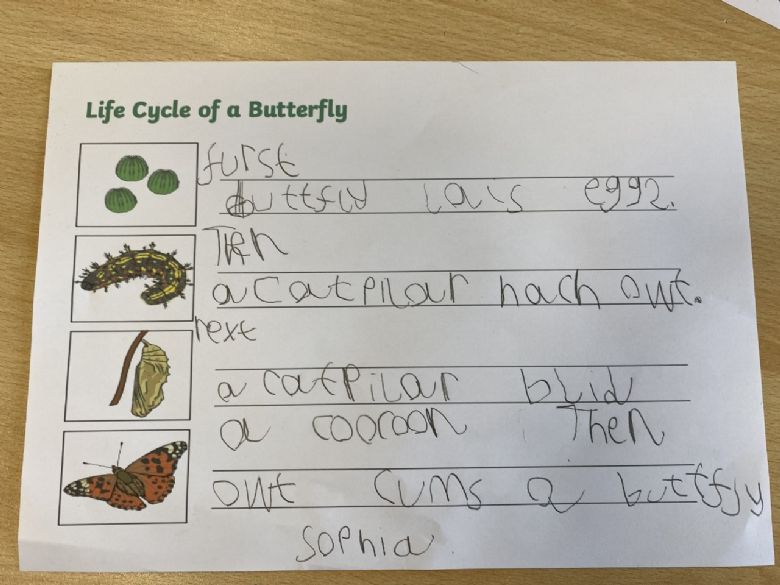 Life Cycle of a Butterfly
furst
buttfly lais eggz.
Then
a catpilar hach owt.
next
a catpilar blid
a cocoon Then
owt cums a buttfly
Sophia